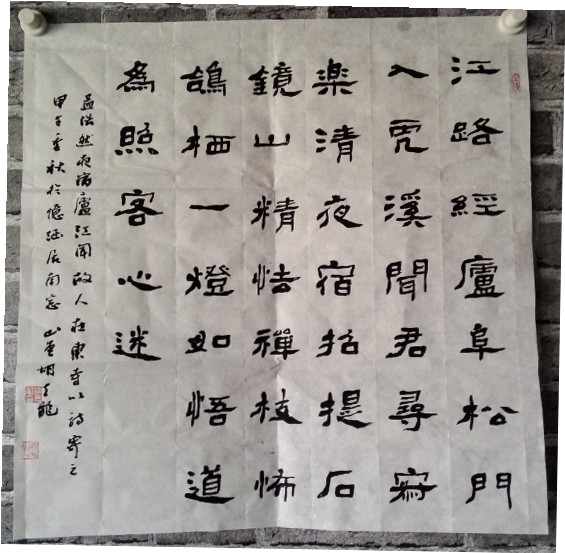 江路經廬阜松門
入虎溪聞君尋寂
楽清夜宿招提石
鏡山精怯禪枝怖
鴿栖一燈如悟道
為照客心迷
孟浩然夜宿廬江聞故人在東寺以詩寄之
甲午季秋於憶居南窗山胡龍